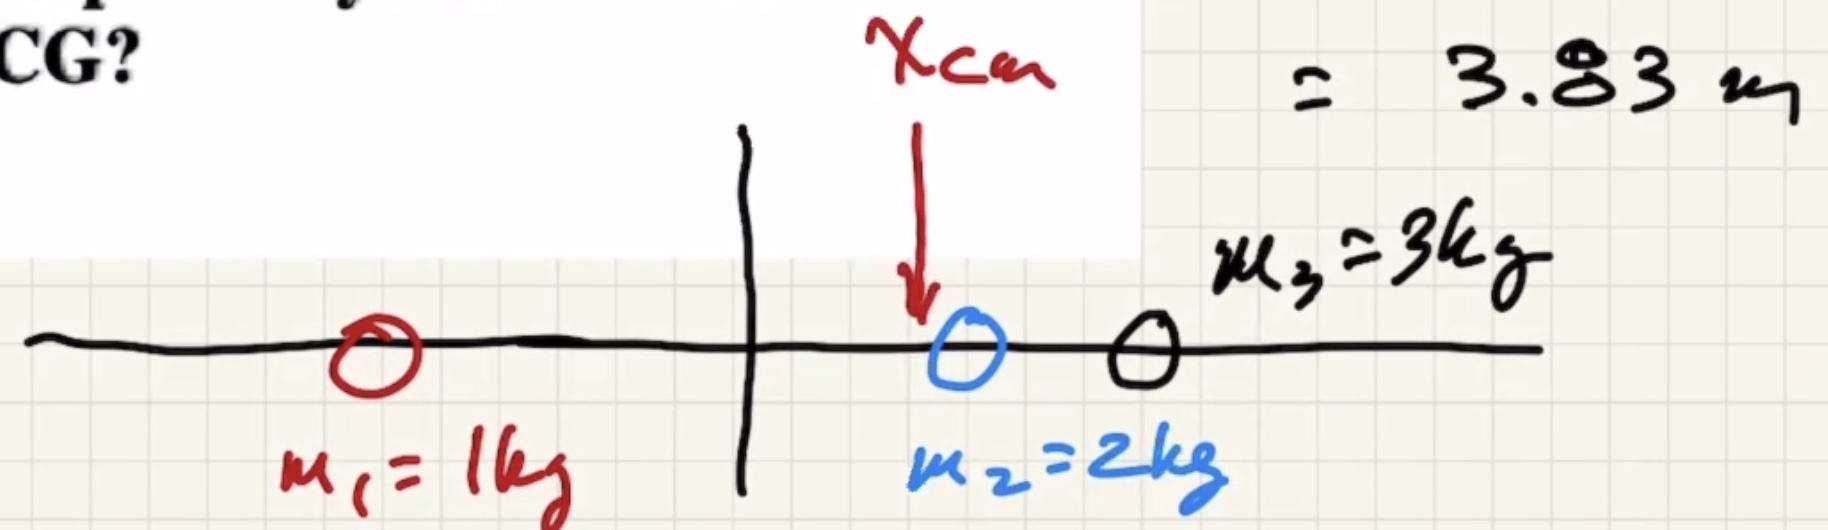 CG?
Xcm
= 3.83 m
m3 = 3kg
m1 = 1kg
m2 = 2kg